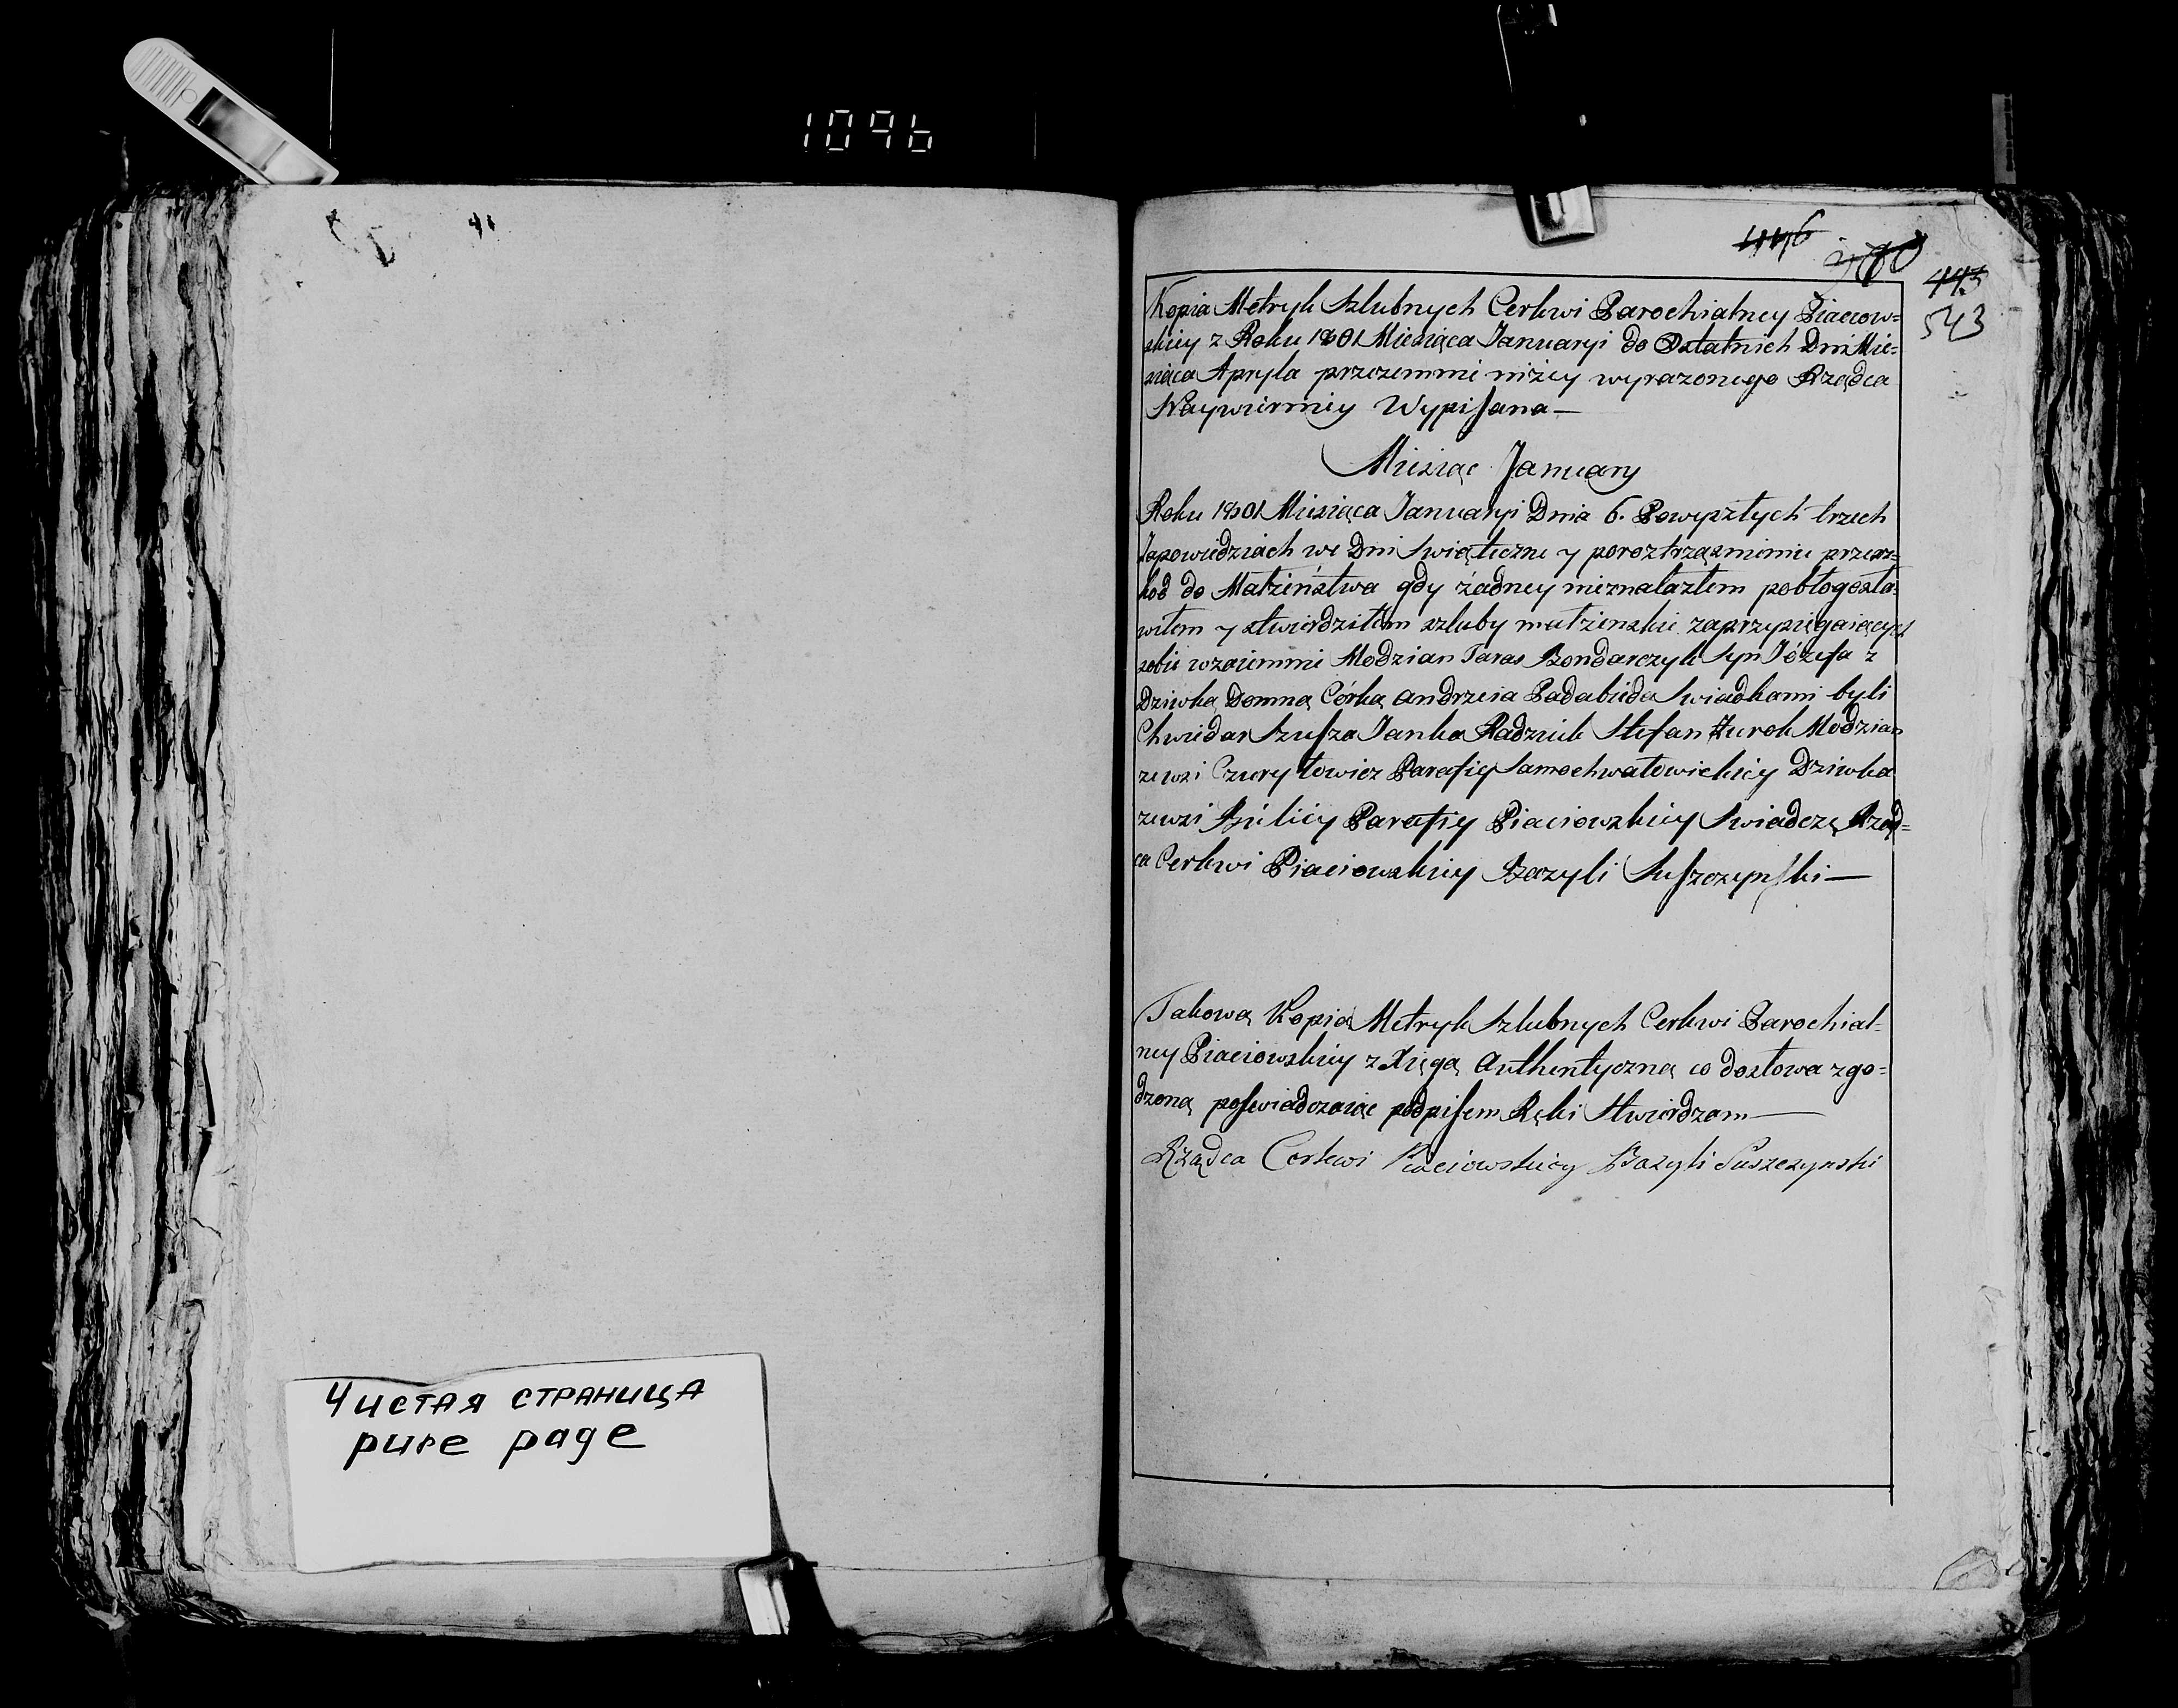 1096
446
443
543
Kopia Metryk Szlubnych Cerkwi Parochialney Piaciow=
skiey z Roku 1801 Miesiąca Januaryi do Ostatnich Dni Mie=
siąca Apryla przezemnie niżey wyrazonego Rządca
Naywierniey Wypisana—
Miesiąc January
Roku 1801 Miesiąca Januaryi Dnia 6. Powyszłych trzech
Zapowiedziach we Dni Swiąteczne y poroztrząsnieniu przesz=
kod do Małzeństwa gdy żadney nieznalazłem pobłogosła=
wiłem y stwierdziłem szluby małzenskie zaprzysięgaiących
sobie wzaiemnie Modzian Taras Bondarczyk Syn Józefa z
Dziwką Domną Córką Andrzeia Padabieda Swiadkami byli
Chwiedar Szusza Janka Radziuk Stefan Żurok Modzian
zewsi Czuryłowicz Parafiy Samochwałowickiey Dziwka
zewsi Bielicy Parafiy Piaciowskiey Swiadczę Rząd=
ca Cerkwi Piaciowskiey Bazyli Suszczynski—
Takową Kopią Metryk Szlubnych Cerkwi Parochial=
ney Piaciowskiey z Xięgą Authentyczną co dosłowa zgo=
dzoną poswiadczaiąc podpisem Ręki Stwierdzam—
Rządca Cerkwi Piaciowskiey Bazyli Suszczynski
Чистая страница
pure page